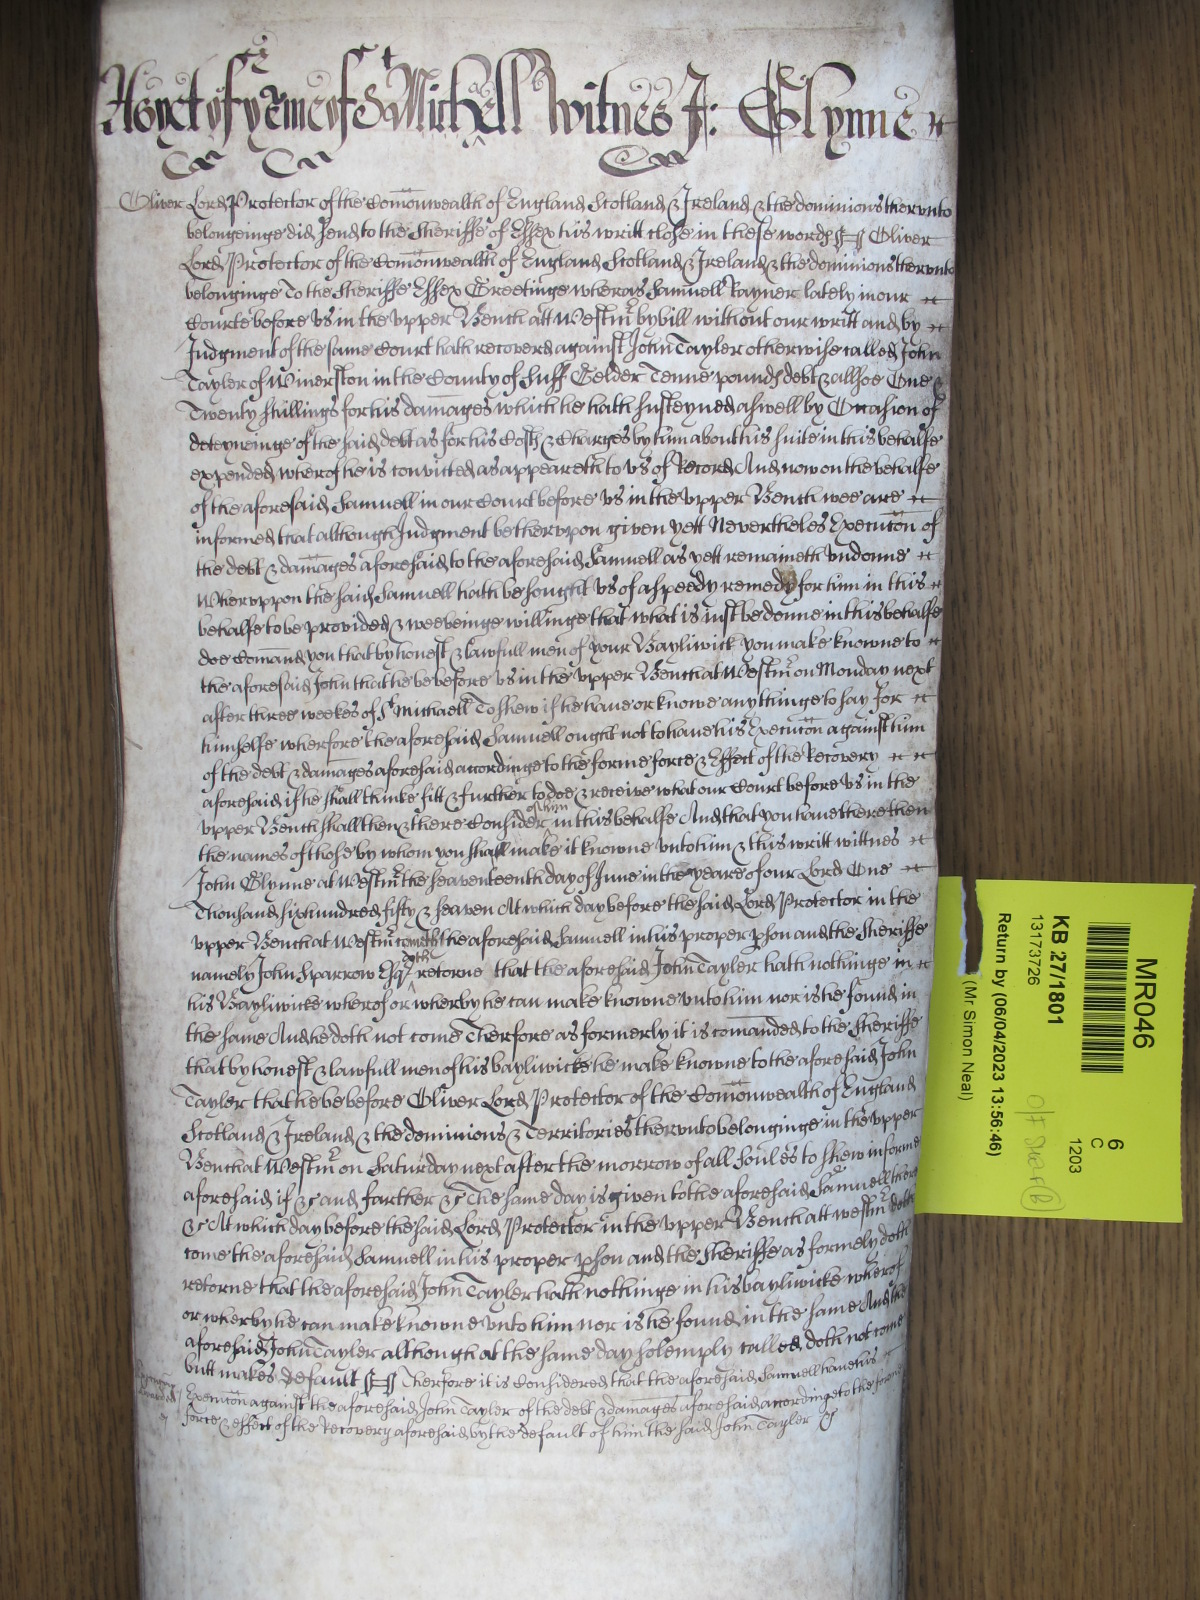 As yet of ye Terme of St Michell Witnes J: Glynne
Oliver Lord Protector of the Comonwealth of England Scotland & Ireland & the dominions thervnto
belongeinge did send to the Sheriffe of Essex his writt close in these words ss Oliver
Lord Protector of the Comonwealth of England Scotland & Ireland & the dominions thervnto
belonginge To the Sheriffe Essex Greetinge wheras Samuell Rayner lately in our
Courte before vs in the vpper Bench att Westmr by bill without our writt and by
Judgment of the same Court hath recovered against John Tayler otherwise called John
Tayler of Winerston in the County of Suff Gelder Tenne pounds debt & allsoe One &
Twenty shillings for his damages which he hath susteyned aswell by Occasion of
deteyneinge of the said debt as for his Costs & Charges by him about his suite in this behalfe
expended wherof he is convicted as appeareth to vs of Record And now on the behalfe
of the aforesaid Samuell in our Court before vs in the vpper Bench wee are
informed that although Judgment be thervpon given yett Nevertheles Execucon of
the debt & damages aforesaid to the aforesaid Samuell as yett remaineth vndonne
Whervppon the said Samuell hath besought vs of a speedy remedy for him in this
behalfe to be provided & wee beinge willinge that what is iust be donne in this behalfe
doe Comand you that by honest & lawfull men of your Bayliwick you make knowne to
the aforesaid John that he be before vs in the vpper Bench at Westmr on Monday next
after three weekes of St Michaell To shew if he haue or knowe any thinge to say for
himselfe wherfore the aforesaid Samuell ought not to haue his Execucon against him
of the debt & damages aforesaid accordinge to the forme force & Effect of the Recovery
aforesaid if he shall thinke fitt & further to doe & receive what our Court before vs in the
vpper Bench shall then & there Consider of him in this behalfe And that you haue there then
the names of those by whom you shall make it knowne vnto him & this writt wittnes
John Glynne at Westmr the seaventeenth day of June in the yeare of our Lord One
Thousand six hundred fifty & seaven At which day before the said Lord Protector in the
vpper Bench at Westmr cometh the aforesaid Samuell in his proper pson and the Sheriffe
namely John Sparrow Esqr doth retorne that the aforesaid John Tayler hath nothinge in
his Bayliwicke wherof or wherby he can make knowne vnto him nor is he found in
the same And he doth not come Therfore as formerly it is comanded to the Sheriffe
that by honest & lawfull men of his bayliwicke he make knowne to the aforesaid John
Tayler that he be before Oliver Lord Protector of the Comonwealth of England
Scotland & Ireland & the dominions & Territories thervnto belonginge in the vpper
Bench at Westmr on Saturday next after the morrow of all Soules to shew in forme
aforesaid if &c and farther &c The same day is given to the aforesaid Samuell there
&c At which day before the said Lord Protector in the vpper Bench att westmr doth
come the aforesaid Samuell in his proper pson and the Sheriffe as formely doth
retorne that the aforesaid John Tayler hath nothinge in his bayliwicke wherof
or wherby he can make knowne vnto him nor is he found in the same And the
aforesaid John Tayler although at the same day solemply called doth not come
butt makes default ss Therfore it is Considered that the aforesaid Samuell haue his
Execucon against the aforesaid John Tayler of the debt & damages aforesaid accordinge to the forme
force & effect of the Recovery aforesaid by the default of him the said John Tayler &c
MR046
6
C
1203
KB 27/1801
13173726
Return by (06/04/2023 13:56:46)
(Mr Simon Neal)